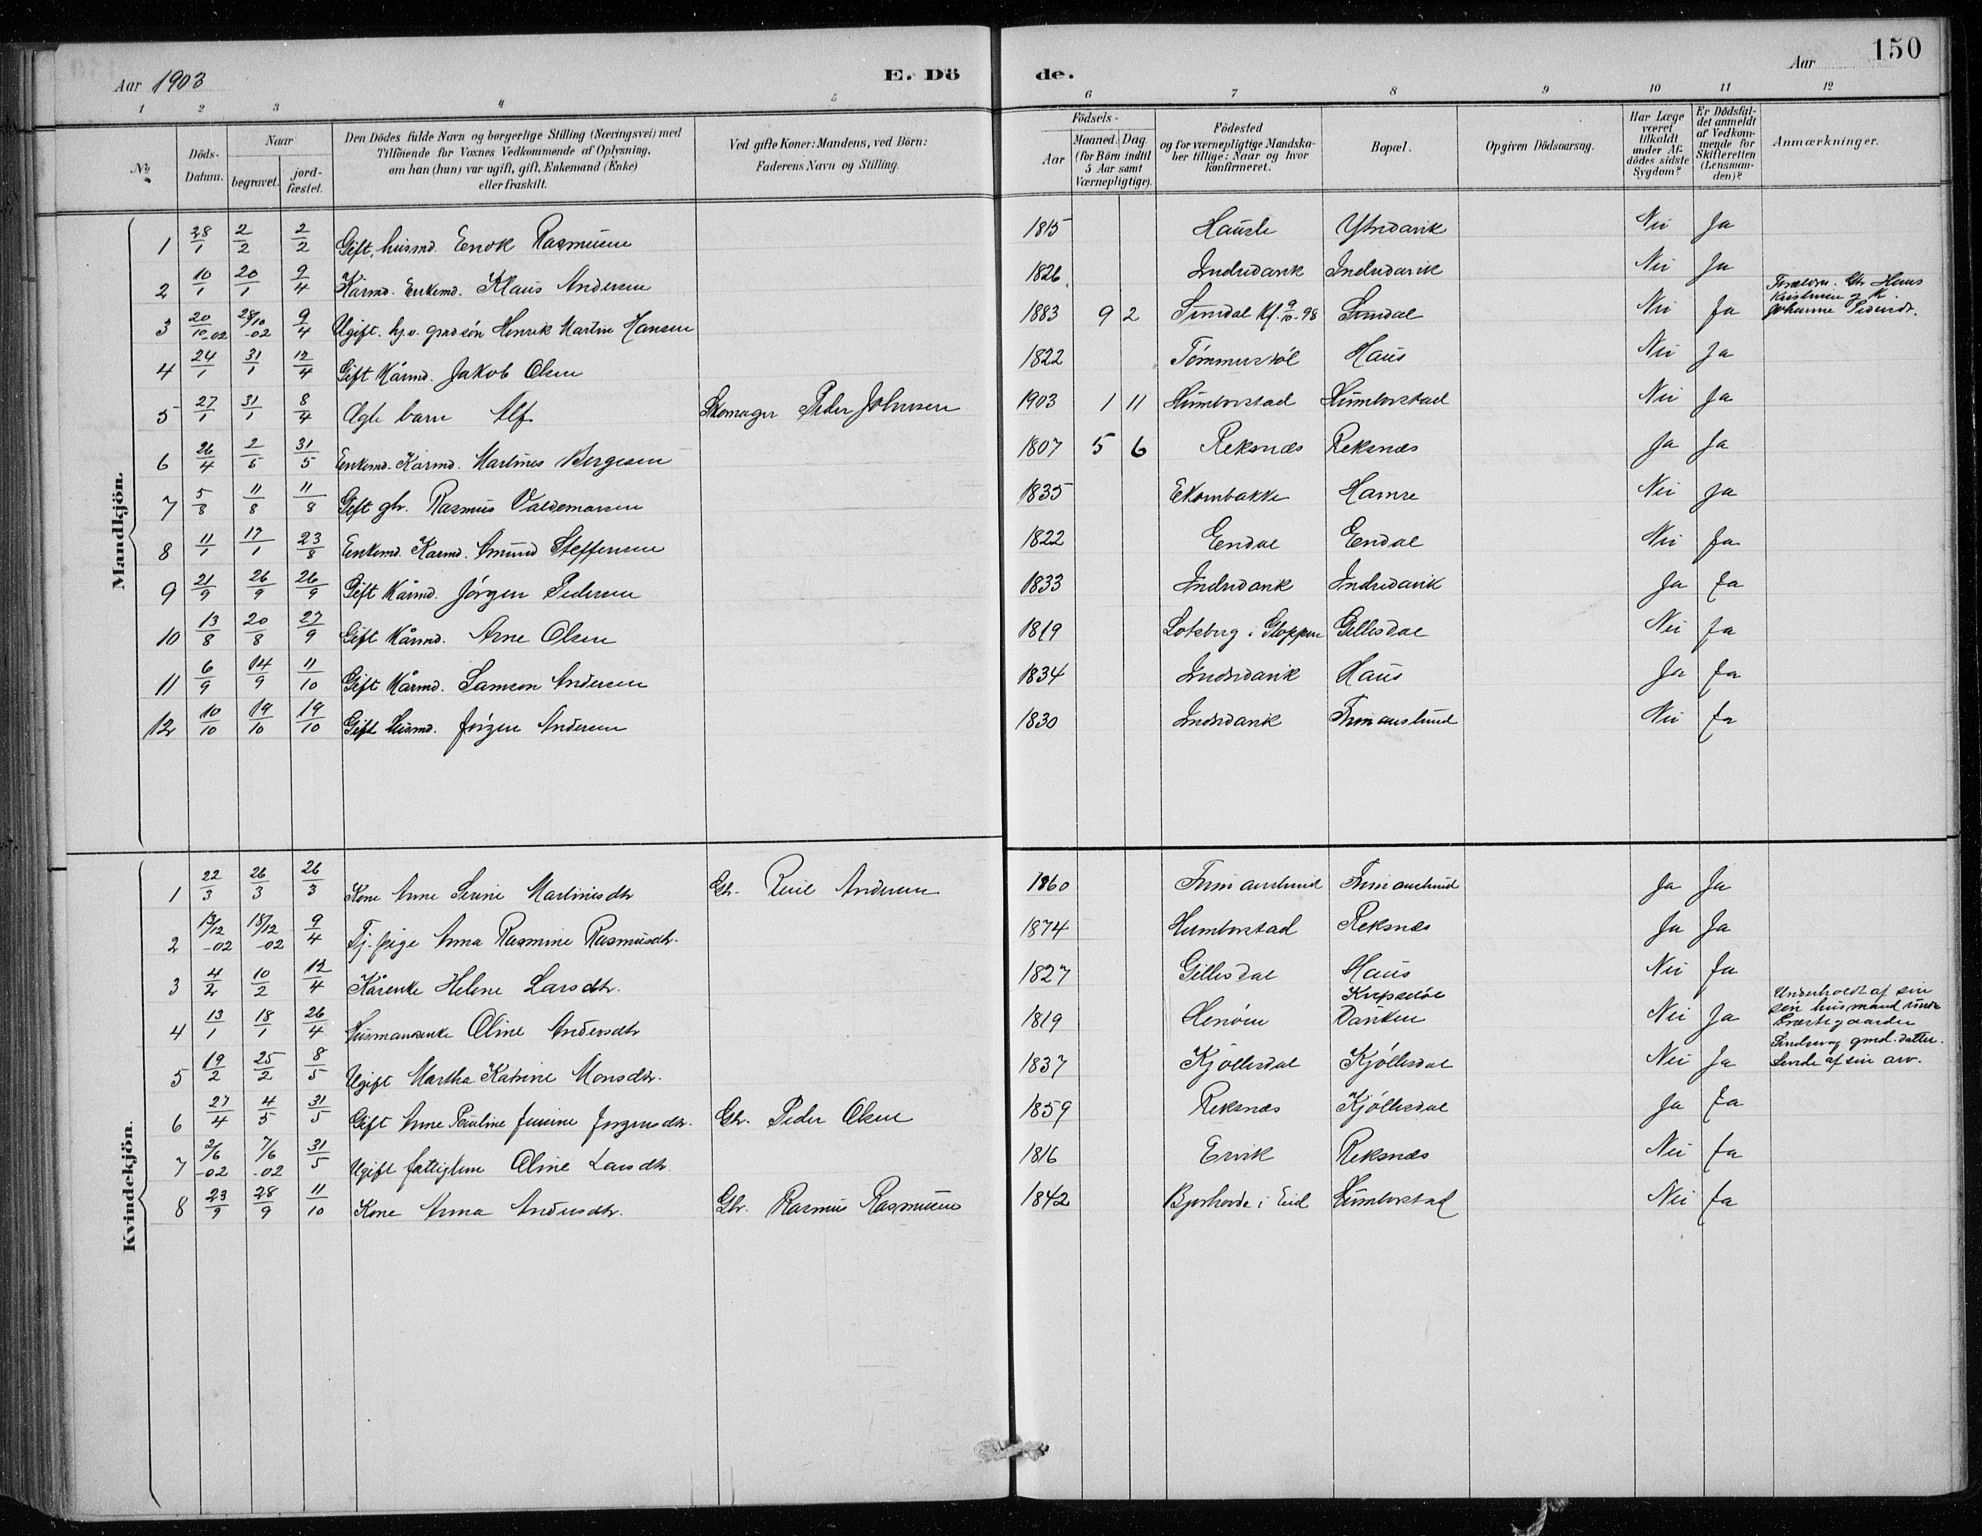 150
Aar 1903
E. Dö
de.
Aar
1 2 3 4 5 6 7 8 9 10 11 12
No
Döds-Datum.
Naar
begravet.
jord-fæstet.
Den Dödes fulde Navn og borgerlige Stilling (Næringsvei) med
Tilföiende for Voxnes Vedkommende af Oplysning,
om han (hun) var ugift, gift, Enkemand (Enke)
eller fraskilt.
Ved gifte Koner: Mandens, ved Börn:
Faderens Navn og Stilling.
Födsels-
Aar
Maaned. Dag
(for Börn indtil
5 Aar samt
Værnepligtige).
Födested
og for værnepligtige Mandska-
ber tillige: Naar og hvor
konfirmeret.
Bopæl.
Opgiven Dödsaarsag.
Har Læge
været
tilkaldt
under Af-
dödes sidste
Sygdom?
Er Dödsfal-
det anmeldt
af Vedkom-
mende for
Skifteretten
(Lensman-
den)?
Anmærkninger.
Mandkjön.
1 28/1 2/2 2/2 Gift, husmd. Enok Rasmusen 1815 Hausle Ytredavik Nei Ja
2 10/1 20/1 9/4 Kårmd. Enkemd. Klaus Andersen 1826 Indredavik Indredavik Nei Ja
3 20/10-02 28/10-02 9/4 Ugift. hjv. grdsøn Henrik Martin Hansen 1883 9 2 Sundal Kf. 9/10-98 Sundal Nei Ja
Forældre. Gbr Hans
Kristensen og K.
Johanne
4 24/1 31/1 12/4 Gift Kårmd. Jakob Olsen 1822 Haus Nei Ja
5 27/1 31/1 8/4 Ægte barn Alf Skomager Peder Johnsen 1903 1 11 Humborstad Humborstad Nei Ja
6 26/4 2/5 31/5 Enkemd. Kårmd. Martinus Børgesen 1807 5 6 Reksnæs Reksnæs Ja Ja
7 5/8 11/8 11/8 Gift gbr. Rasmus Valdemarsen 1835 Ekornbakke Hamre Nei Ja
8 11/1 17/1 23/8 Enkemd. Kårmd. Amund Steffensen 1822 Endal Endal Nei Ja
9 21/9 26/9 26/9 Gift Kårmd. Jørgen Pedersen 1833 Indredavik Indredavik Ja Ja
10 13/8 20/8 27/9 Gift Kårmd. Arne Olsen 1819 Lotsberg i Gloppen Gillesdal Nei Ja
11 6/9 14/9 11/10 Gift Kårmd. Samson Andersen 1834 Indredavik Haus Ja Ja
12 10/10 19/10 19/10 Gift Husmd. Jørgen Andersen 1830 Indredavik Frimanslund Nei Ja
Kvindekjön.
1 22/3 26/3 26/3 Kone Anne Serine Martinusdtr Gbr. Andersen 1860 Frimanslund Frimanslund Ja Ja
2 13/12-02 18/12-02 9/4 Tj. pige Anna Rasmine Rasmusdtr. 1874 Humborstad Reksnæs Ja Ja
3 4/2 10/2 12/4 Kårenke Helene Larsdtr. 1827 Gillesdal Haus Nei Ja
4 13/1 18/1 26/4 Husmansenke Oline Andersdtr 1819 Henøen Nei Ja
Underholdt af sin
søn husmand under
Præstegaarden
5 19/2 25/2 8/5 Ugift Martha Katrine Monsdtr. 1837 Kjøllesdal Kjøllesdal Nei Ja
Sindssvag grd. datter.
Levde af sin arv.
6 27/4 4/5 31/5 Gift Anne Pauline Jensine Jørgensdtr. Gbr. Peder Olsen 1859 Reksnæs Kjøllesdal Ja Ja
7 2/6-02 7/6-02 31/5 Ugift fattiglem Oline Larsdtr. 1816 Ervik Reksnæs Nei Ja
8 23/9 28/9 11/10 Kone Anna Andersdtr. Gbr. Rasmus Rasmusen 1842 Bjørhovde i Eid Humborstad Nei Ja